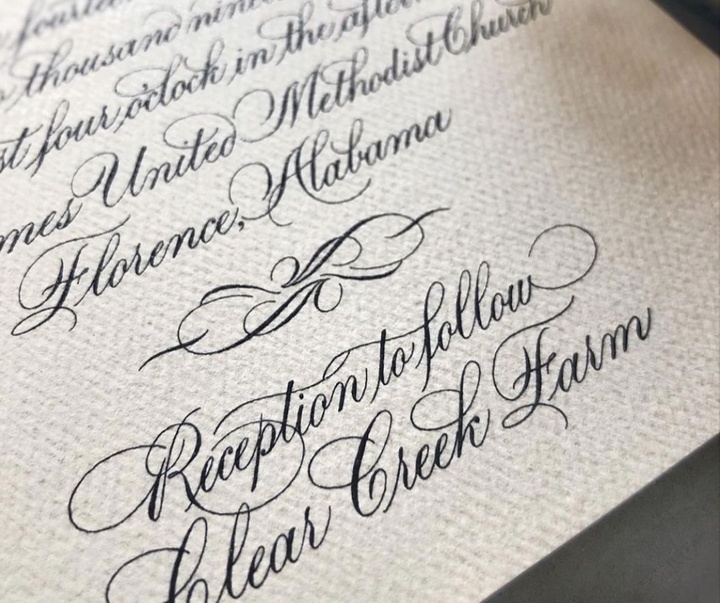 thousand nine
four o'clock in the after
mes United Methodist Church
Florence, Alabama
Reception to follow
Clear Creek Farm